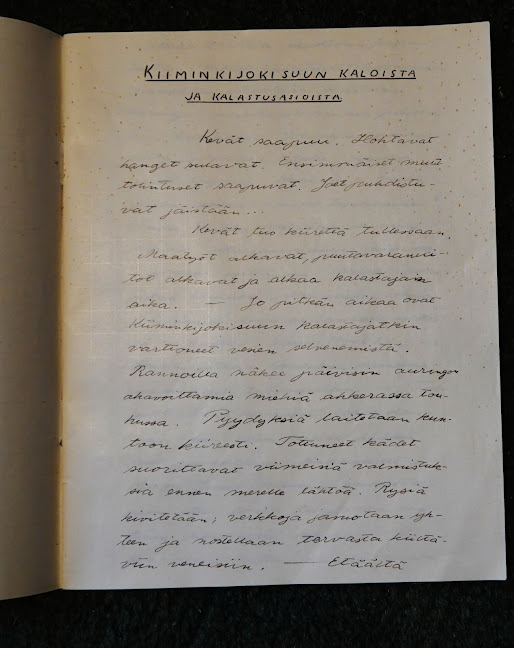 KIIMINKIJOKISUUN KALOISTA
JA KALASTUSASIOISTA
Kevät saapuu. Hohtavat
hanget sulavat. Ensimmäiset muut-
tolintuset saapuvat. Joet puhdistu-
vat jäistään...
Kevät tuo kiirettä tullessaan.
Maatyöt alkavat, puutavarauui-
tot alkavat ja alkaa kalastajain
aika. — Jo pitkän aikaa ovat
Kiiminkijokisuun kalastajatkin
vartioneet vesien selvenemistä.
Rannoilla näkee päivisin auringon
ahavoittamia miehiä ahkerassa tou-
hussa. Pyydyksiä laitetaan kun-
toon kiireesti. Tottuneet kädet
suorittavat viimeisiä valmistuk-
sia ennen merelle lähtöä. Rysiä
kivitetään; verkkoja jamotaan yh-
teen ja nostellaan tervasta kiiltä-
viin veneisiin. — Etäältä